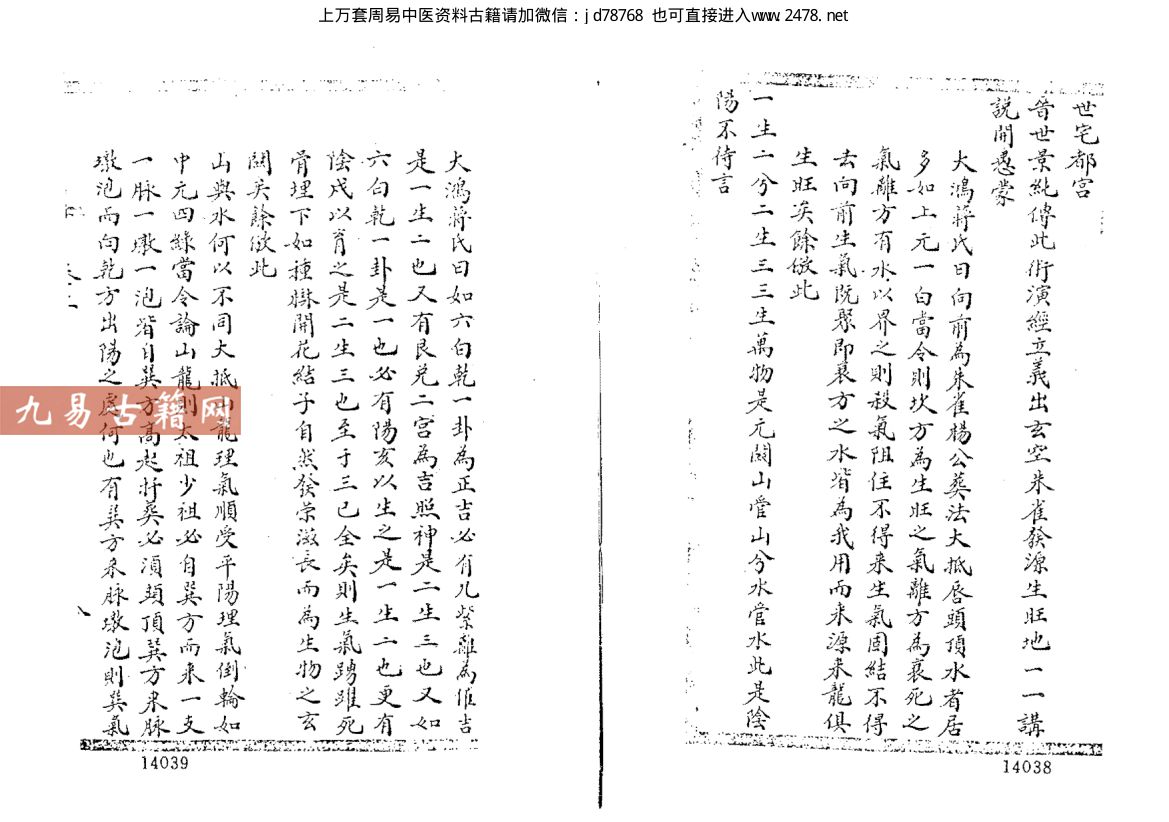 上万套周易中医资料古籍请加微信：jd78768 也可直接进入www.2478.net
世宅都宫
晉世景純傳此術演經立義出玄空朱雀發源生旺地一一講
說開愚蒙
大鴻蔣氏曰向前為朱雀楊公葬法大抵唇頭頂水者居
多如上元一白當令則坎方為生旺之氣離方為衰死之
氣離方有水以界之則殺氣阻住不得来生氣固結不得
去向前生氣既聚即衰方之水皆為我用而来源来龍俱
生旺矣餘倣此
一生二兮二生三三生萬物是元關山管山兮水管水此是陰
陽不待言
14038
大鴻蔣氏曰如六白乾一卦為正吉必有九紫離為催吉
是一生二也又有艮兑二宫為吉照神是二生三也又如
六白乾一卦是一也必有陽亥以生之是一生二也更有
陰戌以育之是二生三也至于三已全矣則生氣踴躍死
骨埋下如種樹開花結子自然發榮滋長而為生物之玄
關矣餘倣此
山與水何以不同大抵山龍理氣順受平陽理氣倒輪如
中元四綠當令論山龍則太祖少祖必自巽方而来一支
一脉一墩一泡皆自巽方高起扦葵必湏頭頂巽方来脉
墩泡而向乾方出陽之處何也有巽方来脉墩泡則巽氣
八
14039
九易古籍网